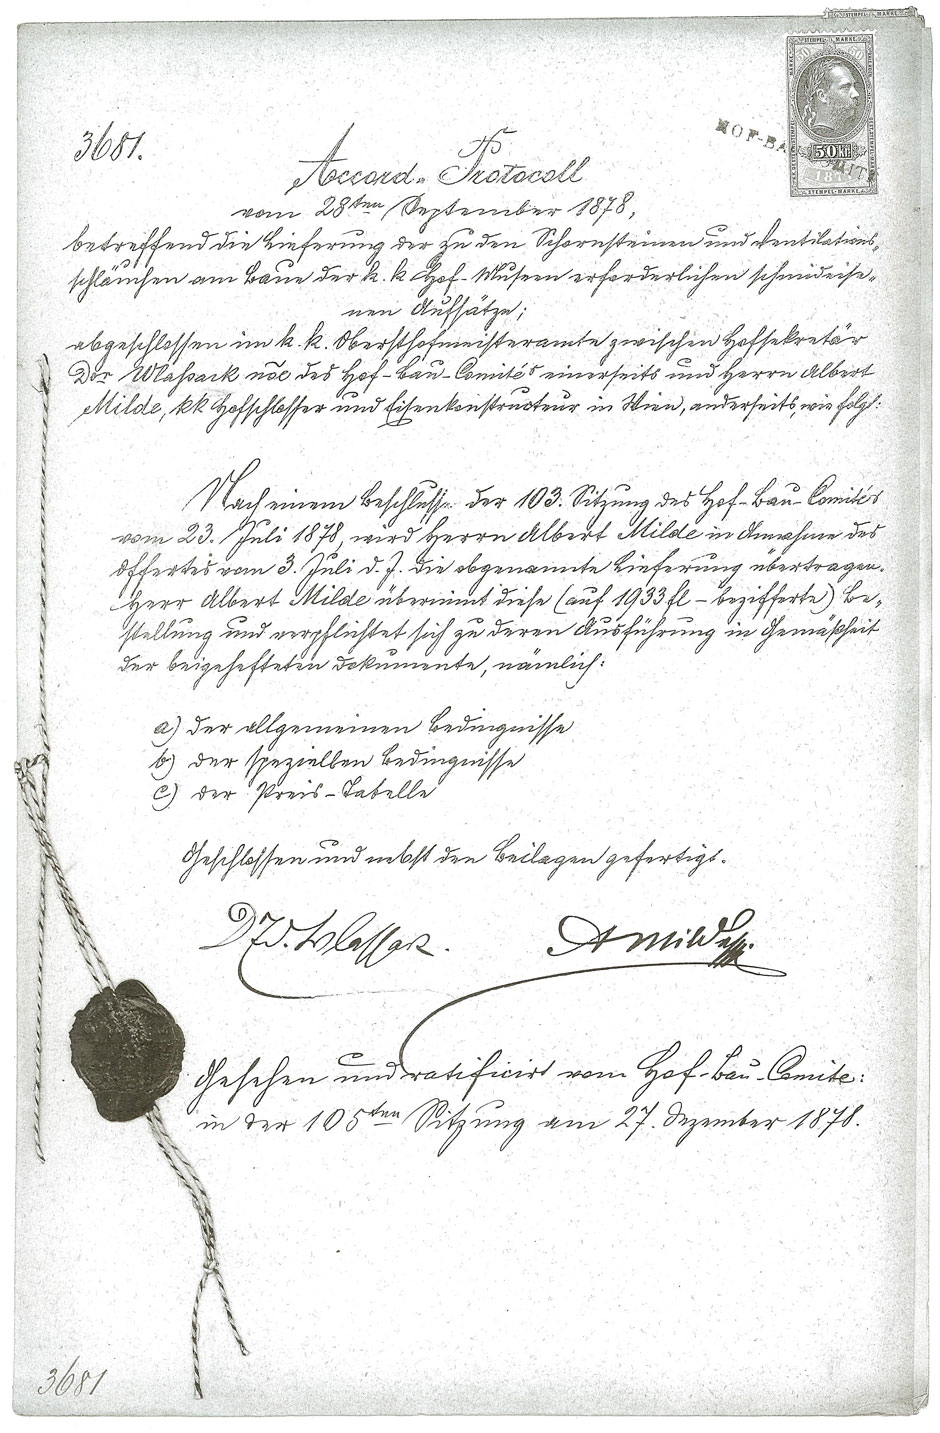 STEMPEL MARKE
STEMPEL MARKE
50 50
HOF-BA
50 kr
STEMPEL-MARKE
3681.
Accord-Protocoll
vom 28ten September 1878,
betreffend die Lieferung der zu den Schornsteinen und Ventilations-
schläuchen am Baue der k. k Hof-Museen erforderlichen schmideise-
nen Aufsätze;
abgeschlossen im k. k. Obersthofmeisteramte zwischen Hofsekretär
Dor Wlassack nōe des Hof-Bau-Comités einerseits und Herrn Albert
Milde, kk Hofschlosser und Eisenkonstructeur in Wien, anderseits, wie folgt:
Nach einem Beschlusse der 103. Sitzung des Hof-Bau-Comités
vom 23. Juli 1878, wird Herrn Albert Milde in Annahme des
Offertes vom 3. Juli d. J. die obgenannte Lieferung übertragen.
Herr Albert Milde übernimt diese (auf 1933 fl – bezifferte) Be-
stellung und verpflichtet sich zu deren Ausführung in Gemäßheit
der beigehefteten Dokumente, nämlich:
a) der allgemeinen Bedingnisse
b) der speziellen Bedingnisse
c) der Preis-Tabelle
Geschlossen und nebst den Beilagen gefertigt.
Wlassack. A Milde
Gesehen und ratificirt vom Hof-Bau-Comite:
in der 105ten Sitzung am 27. Dezember 1878.
3681